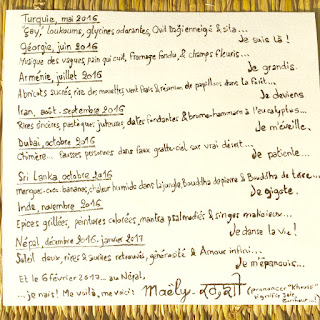 Turquie, mai 2016
"Çay," loukoums, glycines odorantes, Ouil Dağienneigé & sila...
Je suis là !
Géorgie, juin 2016
Musique des vagues, pain qui cuit, fromage fondu, & champs fleuris...
Je grandis.
Arménie, juillet 2016
Abricots sucrés, rire des mouettes, vent frais & réunion de papillons dans la forêt...
Je deviens.
Iran, août-septembre 2016
Rires sincères, pastèques juteuses, dattes fondantes & brume-hammam à l'eucalyptus...
Je m'éveille.
Dubaï, octobre 2016
Chimère... Fausses personnes dans faux gratte-ciel, sur vrai désert...
Je patiente...
Sri Lanka, octobre 2016
bananes, chaleur humide dans la jungle, Bouddha de pierre & Bouddha de terre...
Je gigote.
Inde, novembre 2016
Epices grillées, peintures colorées, mantra psalmodiés & singes malicieux...
Je danse la vie !
Népal, décembre 2016-janvier 2017
Soleil doux, rires & sucres retrouvés, générosité & Amour infini...
Je m'épanouis...
Et le 6 février 2017... au Népal,
...je nais ! Me voilà, me voici : Maëly
(prononcer "Khushi"
signifie Joie,
Bonheur...)